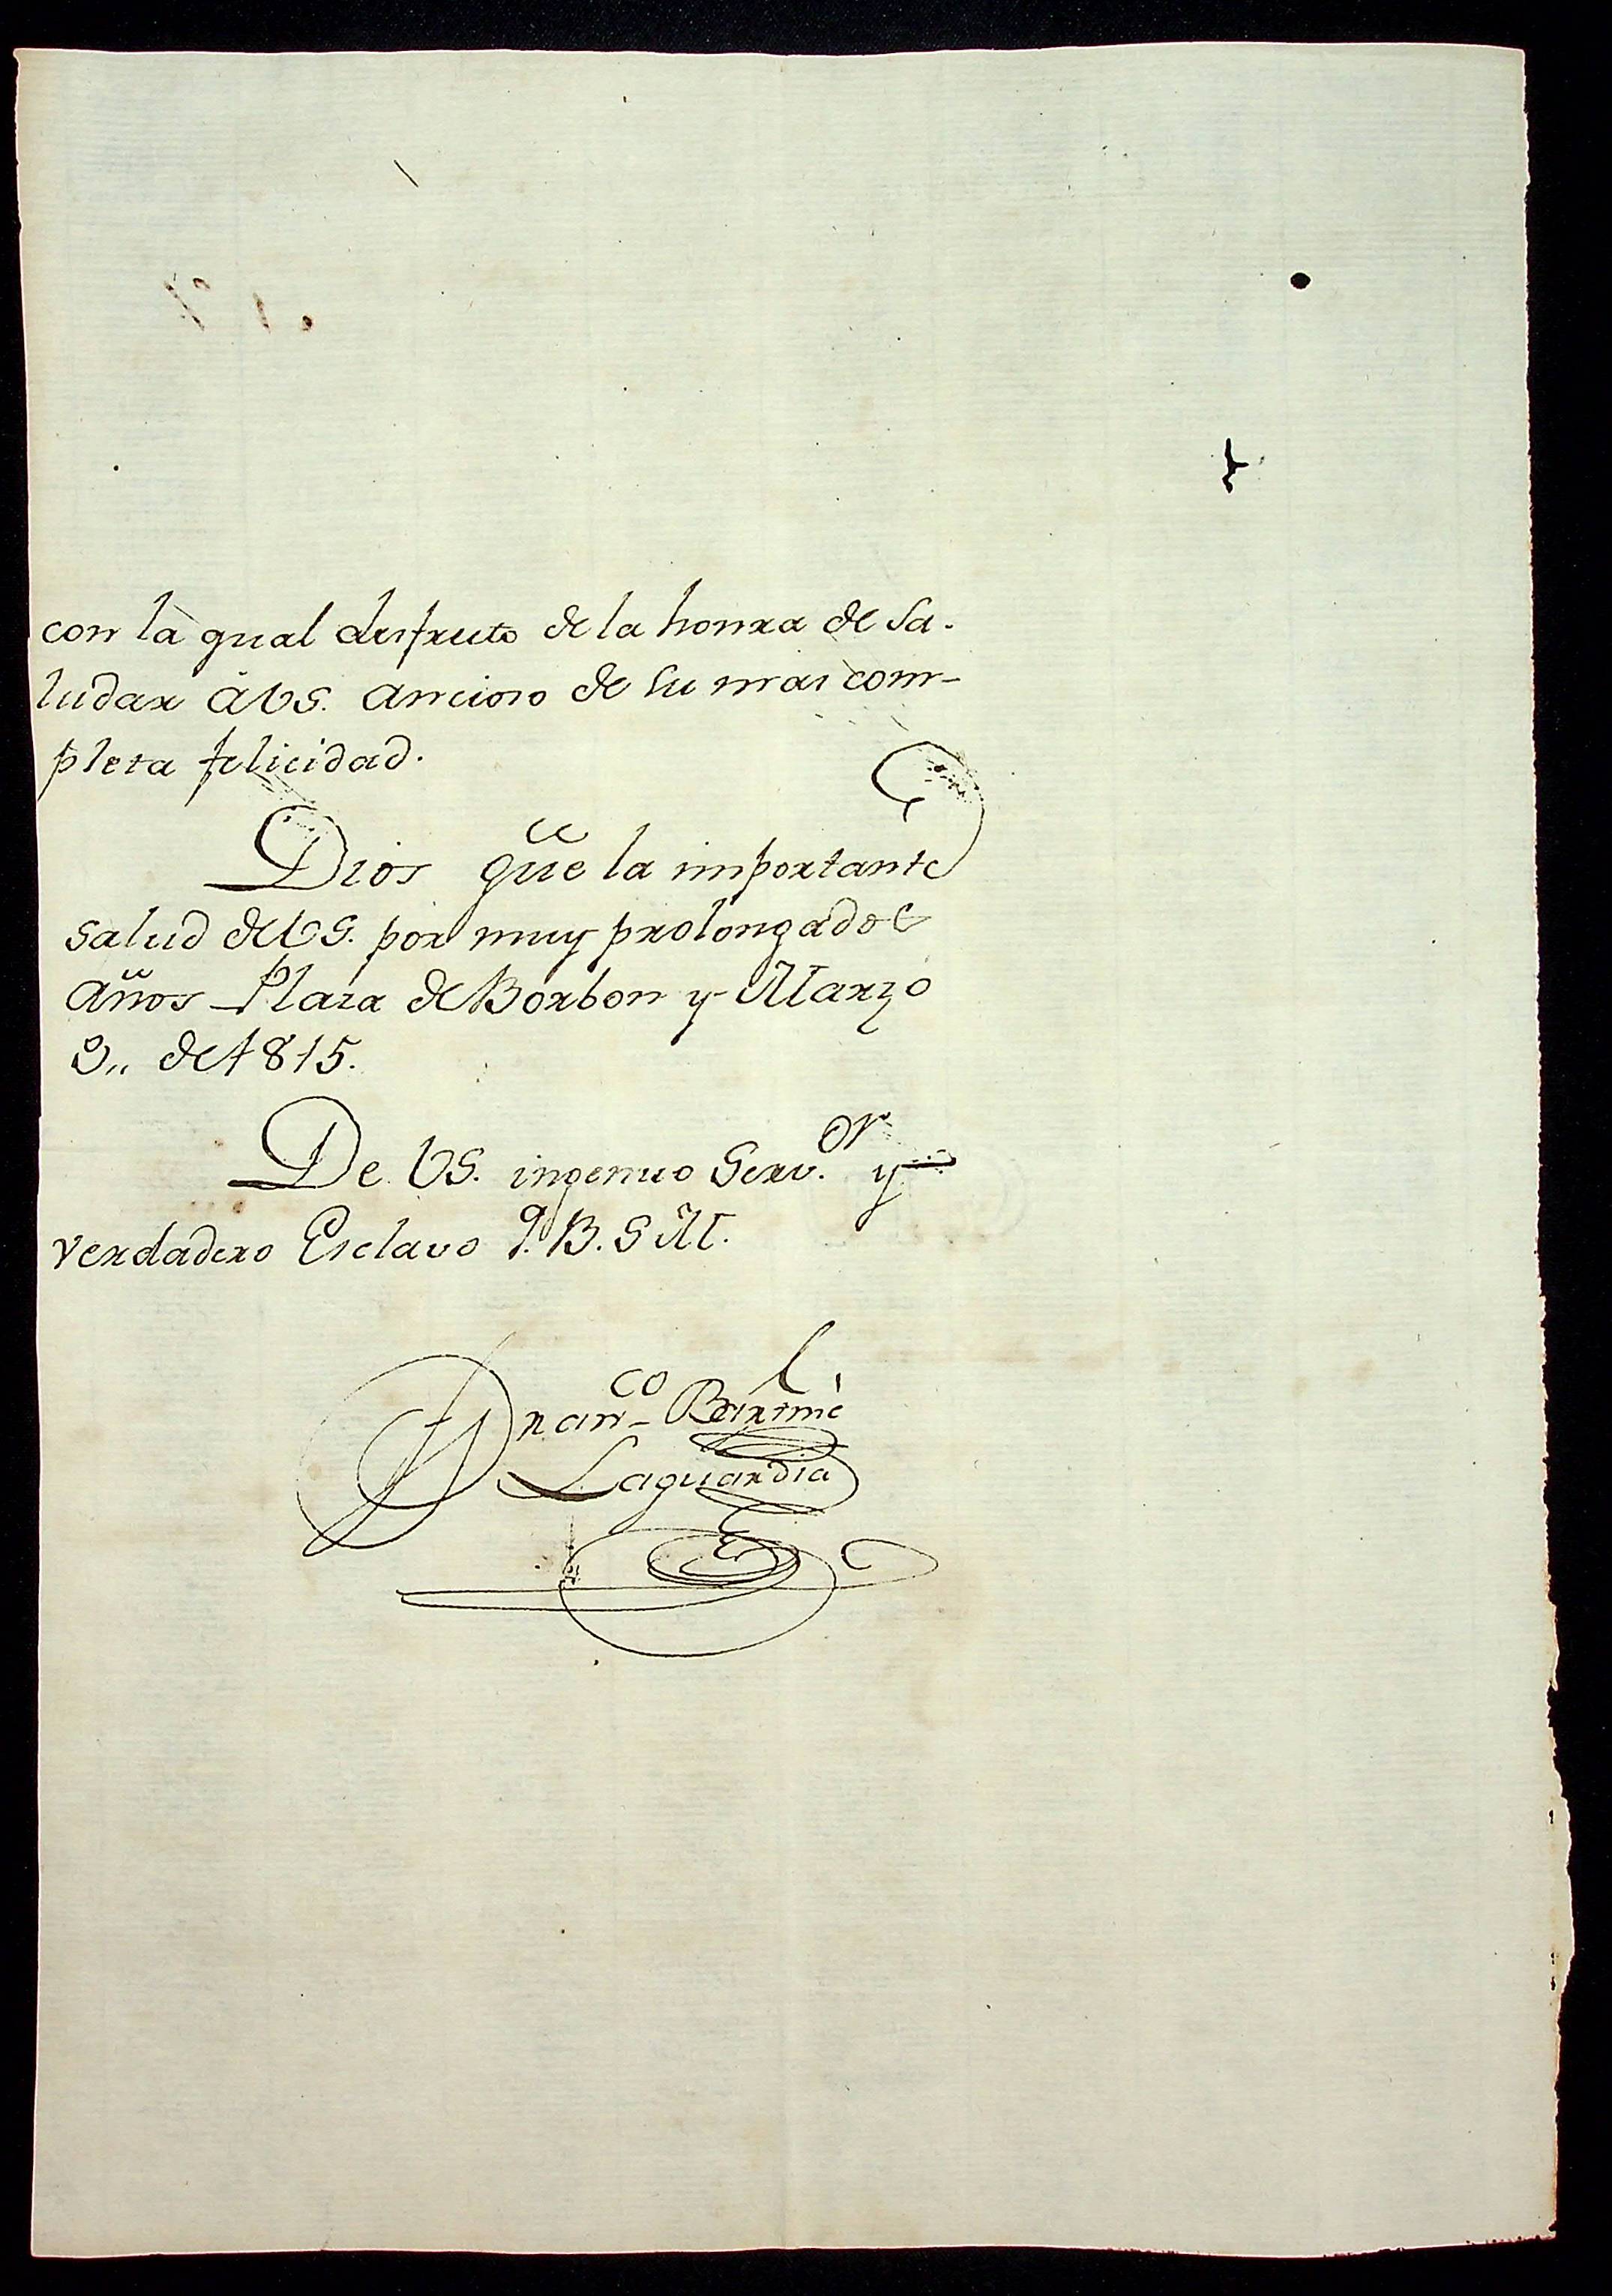 con la qual disfruto de la honra de Sa-
ludar à VS. ancioso de su mas com-
pleta felicidad.
Dios gũe la importante
salud de VS. por muy prolongados
años Plaza de Borbon y Marzo
9,, de 1815.
De VS. ingenuo Serv.or y
verdadero Esclavo q. B. S M.
Fran.co Bartmè
Laguardia